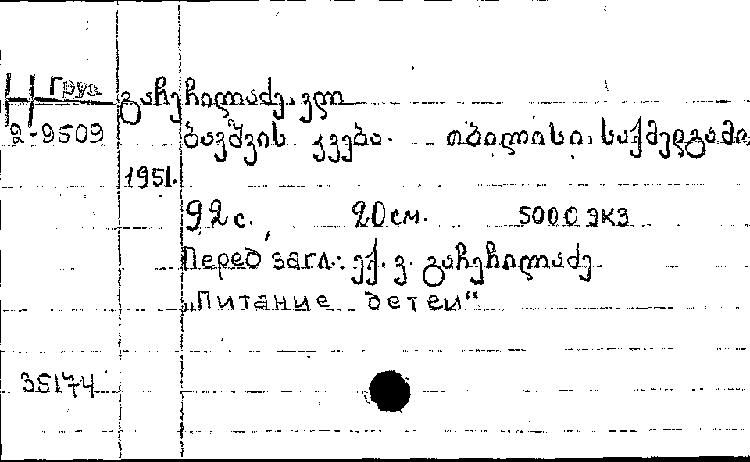 Груз.
გაჩეჩილაძე. ვლ
2-9509
ბავშვის კვება. თბილისი. საქმედგამი,
1951.
92 с. 20 см. 5000 экз
Перед загл.: ექ. ვ. გაჩეჩილაძე
„Питание детей“
35174